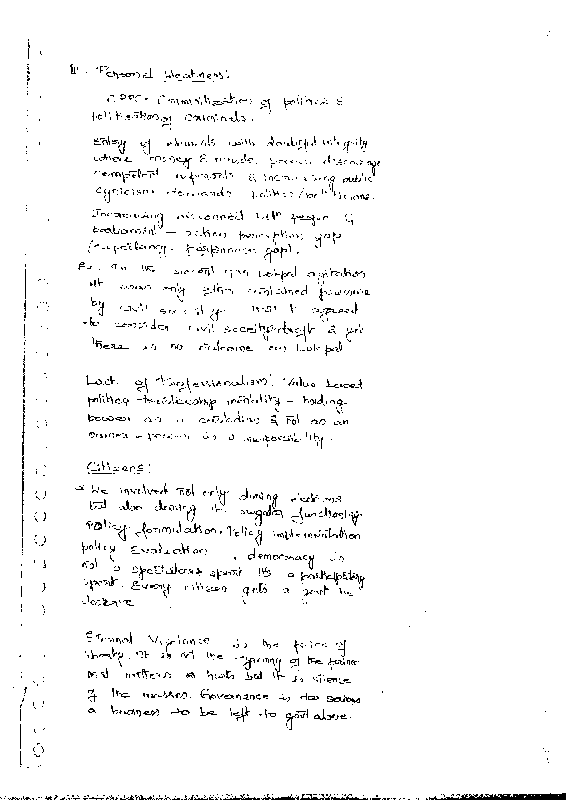 III. Personal Weakness:
CPPC - Criminilization of politics &
politisation of criminals.
Entry of elements with doubtful integrity
where money & muscle power discourage
competent aspirants & increasing public
cynicism towards politics/politicians.
Increasing disconnect with people &
parliament - action perception gap
(expectancy - response gap).
Ex. In the recent Lokpal agitation
it was only after sustained pressure
by civil society Govt agreed
to consider civil society draft & yet
there is no outcome on Lokpal
Lack of 'Professionalism'. Value based
politics trusteeship mentality - holding
power as a custodian & not as an
owner - power is a responsibility.
Citizens:
We involved not only during elections
but also during its regular functioning
Policy formulation, Policy implementation
policy Evaluation, democracy is
not a spectators sport its a participating
sport. Every citizen gets a govt he
deserve
Eternal Vigilance is the price of
liberty. It is not the tyranny of the
that matters or hurts but it is silence
of the masses. Governance is too serious
a business to be left to govt alone.